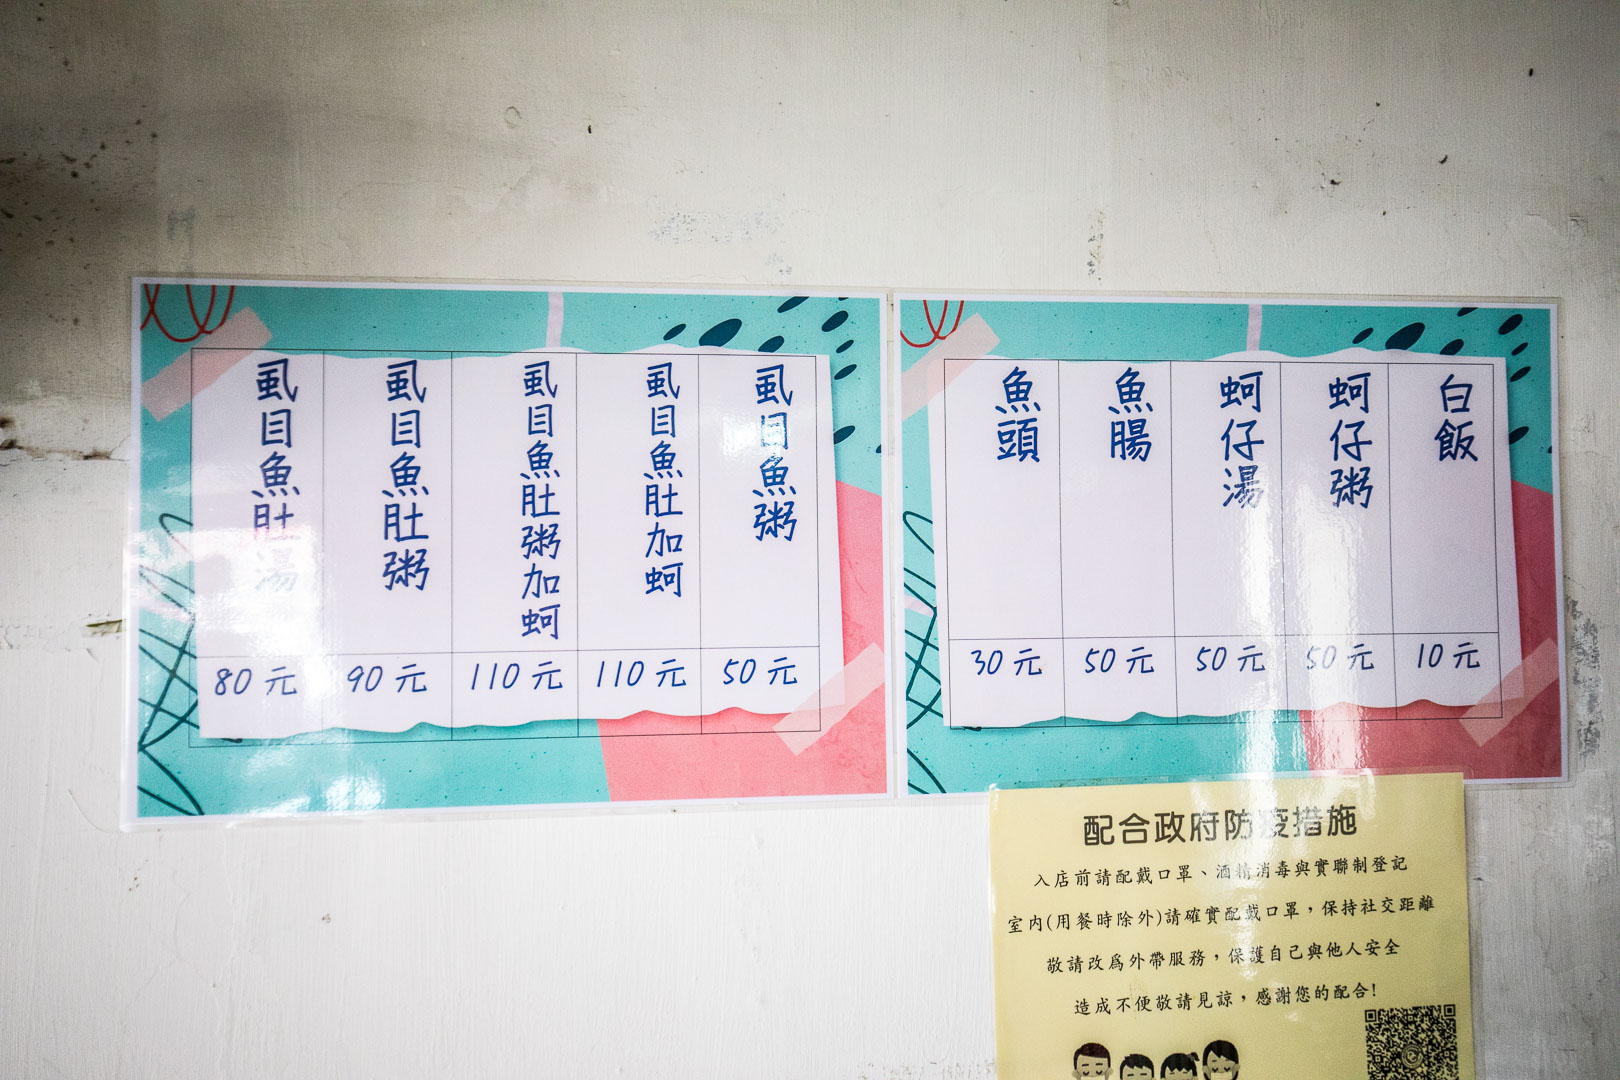 虱目魚肚湯
80元
虱目魚肚粥
90元
虱目魚肚粥加蚵
110元
虱目魚肚加蚵
110元
虱目魚粥
50元
魚頭
30元
魚腸
50元
蚵仔湯
50元
蚵仔粥
50元
白飯
10元
配合政府防疫措施
入店前請配戴口罩、酒精消毒與實聯制登記
室內(用餐時除外)請確實配戴口罩,保持社交距離
敬請改為外帶服務,保護自己與他人安全
造成不便敬請見諒,感謝您的配合!